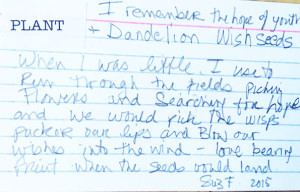 I remember the hope of youth
PLANT
+ Dandelion Wish Seeds
When I was little, I use to
Run through the fields Picking
Flowers and Searching for hope
and we would pick the wisps
pucker our lips and Blow our
wishes into the wind - love bearing
fruit when the seeds would land
2015